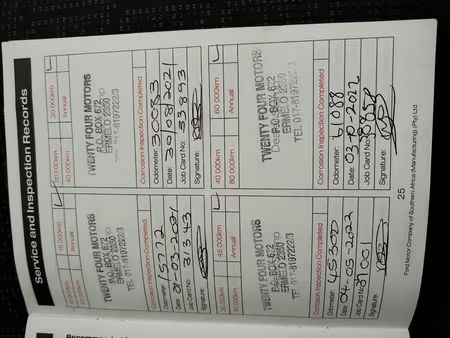 Service and Inspection Records
15 000km
Annual
TWENTY FOUR MOTORS
P.O. BOX 672
ERMELO 2350
TEL 017-8197222/3
Corrosion Inspection Completed
Odometer: 15772
Date: 01-03-2021
Job Card No: 31343
Signature:
30 000km
40 000km
Annual
TWENTY FOUR MOTORS
P.O. BOX 672
ERMELO 2350
TEL 017-8197222/3
Corrosion Inspection Completed
Odometer: 30083
Date: 30/08/2021
Job Card No: 33893
Signature:
45 000km
Annual
TWENTY FOUR MOTORS
P.O. BOX 672
ERMELO 2350
TEL 017-8197222/3
Corrosion Inspection Completed
Odometer: 45300
Date: 04-05-2022
Job Card No: 37001
Signature:
40 000km
60 000km
80 000km
Annual
TWENTY FOUR MOTORS
P.O. BOX 672
ERMELO 2350
TEL 017-8197222/3
Corrosion Inspection Completed
Odometer: 61088
Job Card No:
Signature:
25
Ford Motor Company of Southern Africa (Manufacturing) (Pty) Ltd